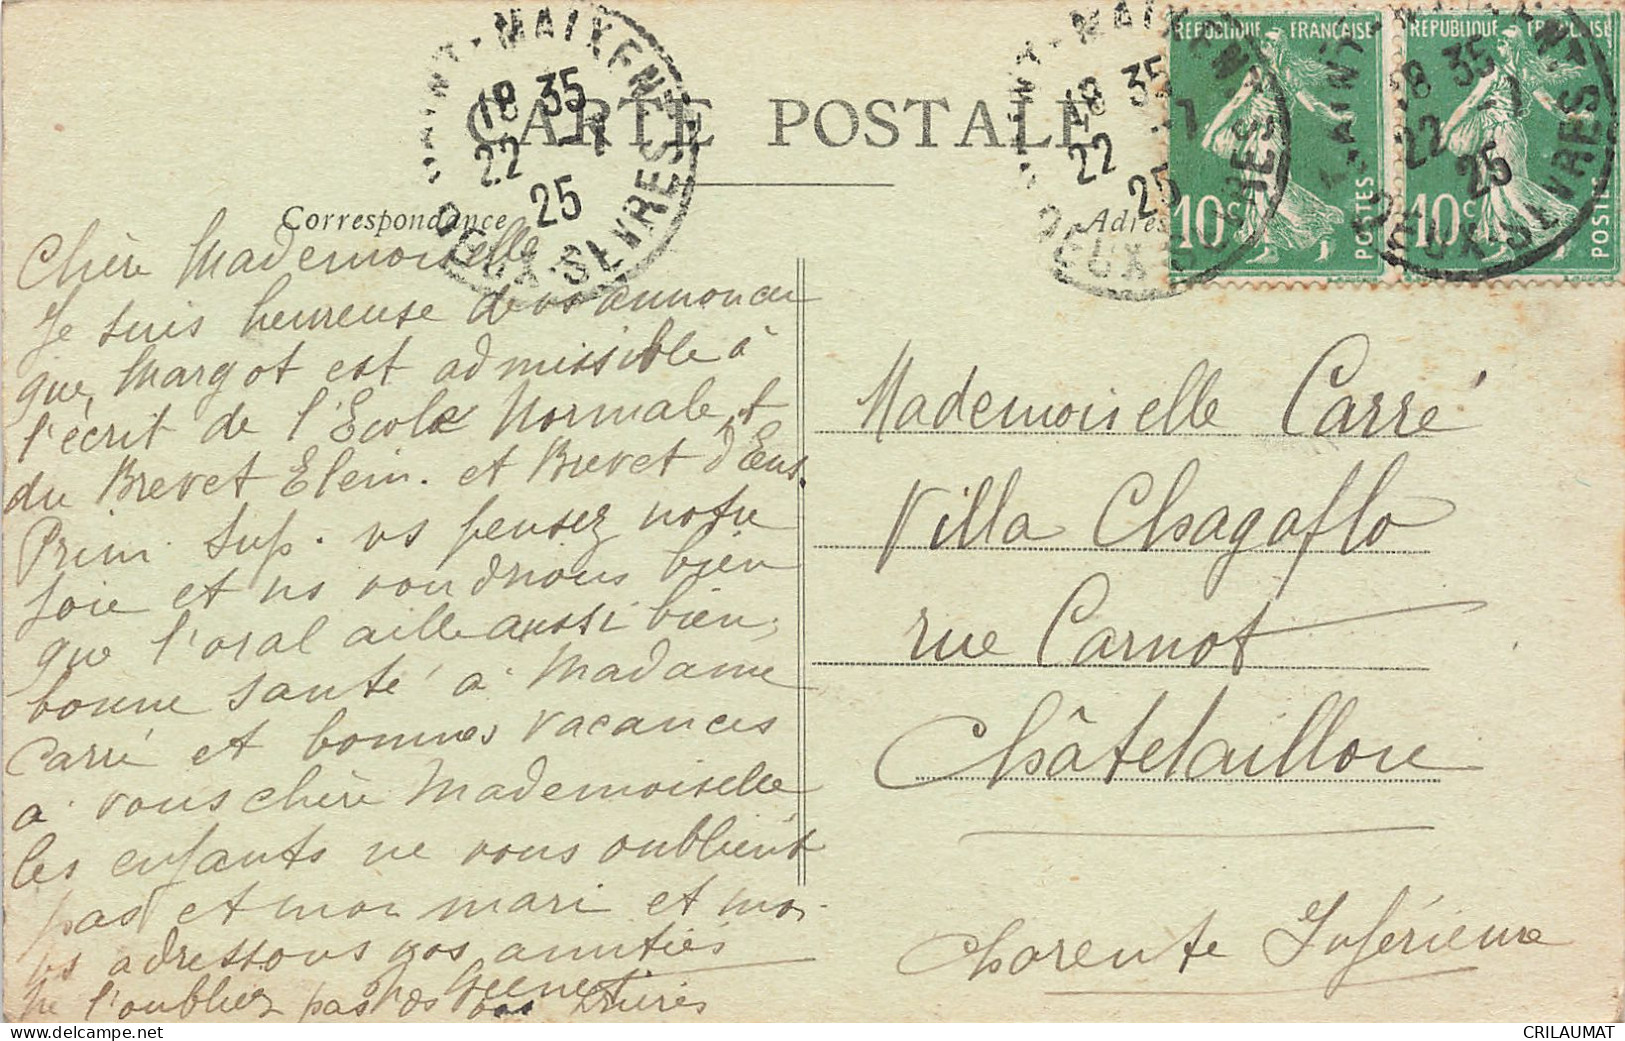 CARTE POSTALE
SAINT-MAIXENT
18 35
22 -7
25
DEUX-SEVRES
SAINT-MAIXENT
18 35
22 -7
25
DEUX-SEVRES
SAINT-
18 35
22 -7
25
DEUX-SEVRES
RÉPUBLIQUE FRANÇAISE
10c
POSTES
RÉPUBLIQUE FRANÇAISE
10c
POSTES
Correspondance
Adres
Chère Mademoiselle
Je suis heureuse de vs annoncer
que Margot est admissible à
l'écrit de l'Ecole Normale et
du Brevet Elem. et Brevet d'Ens.
Prim. Sup. vs pensez notre
joie et ns voudrions bien
que l'oral aille aussi bien,
bonne santé à Madame
Carré et bonnes vacances
à vous chère Mademoiselle
les enfants ne vous oublient
pas et mon mari et moi
vs adressons nos amitiés
Ne l'oubliez pas ds vos prières
Mademoiselle Carré
Villa Chagaflo
rue Carnot
Châtelaillon
Charente Inférieure
CRILAUMAT